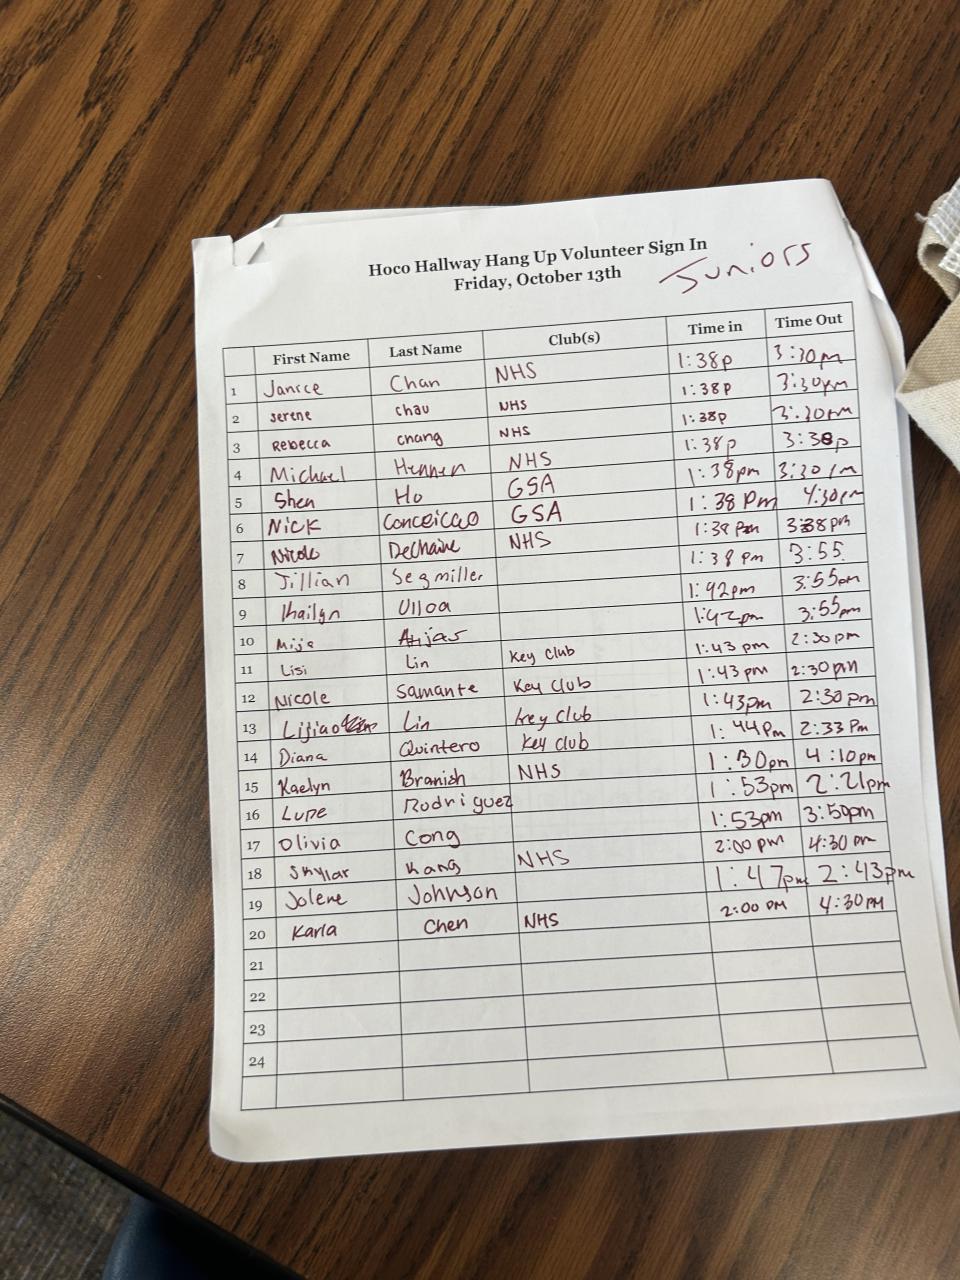 Hoco Hallway Hang Up Volunteer Sign In
Friday, October 13th
Juniors
First Name Last Name Club(s) Time in Time Out
1 Janice Chan NHS 1:38p 3:30pm
2 serene chau NHS 1:38p 3:30pm
3 Rebecca chang NHS 1:38p 3:30pm
4 Michael Hennen NHS 1:38p 3:38p
5 Shea Ho GSA 1:38pm 3:30pm
6 Nick Conceicao GSA 1:38 Pm 4:30pm
7 Nicole Dechaine NHS 1:38 Pm 3:38 pm
8 Jillian Segmiller 1:38 pm 3:55
9 Ulloa 1:42pm 3:55pm
10 1:42pm 3:55pm
11 Lisi Lin Key Club 1:43 pm 2:30pm
12 Nicole Samante Key Club 1:43 pm 2:30pm
13 Lijiao Lin key club 1:43pm 2:30 pm
14 Diana Quintero Key club 1:44Pm 2:33 Pm
15 Kaelyn Branish NHS 1:30pm 4:10pm
16 Lupe Rodriguez 1:53pm 2:21pm
17 Olivia Cong 1:53pm 3:50pm
18 Skyllar Kang NHS 2:00 pm 4:30 pm
19 Jolene Johnson 1:47pm 2:43pm
20 Karla Chen NHS 2:00 PM 4:30PM
21
22
23
24